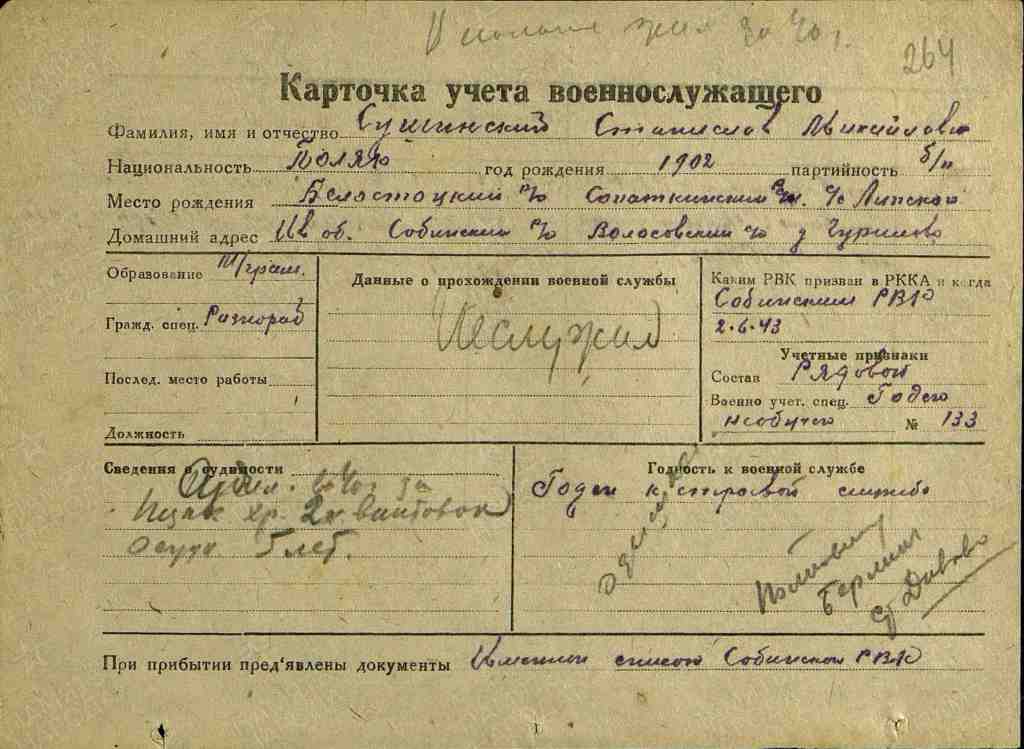 жил до 40 г.
264
Карточка учета военнослужащего
Фамилия, имя и отчество Сушинский Станислав Михайлович
Национальность Поляк год рождения 1902 партийность б/п
Место рождения Белостоцкий Сопоткинский с/с Липской
Домашний адрес Ив об. Собинский Волосовский д
Образование М/грам.
Данные о прохождении военной службы
Каким РВК призван в РККА и когда
Собинским РВК
2.6.43
Гражд. спец. Разнораб
Не служил
Учетные признаки
Состав Рядовой
Послед. место работы
Военно учет. спец. Годен
необучен № 133
Должность
Сведения о судимости
Судил. в 40 г за
хр. 2х винтовок
осужд 5 лет.
Годность к военной службе
Годен к строевой службе
При прибытии пред'явлены документы Именной список Собинского РВК